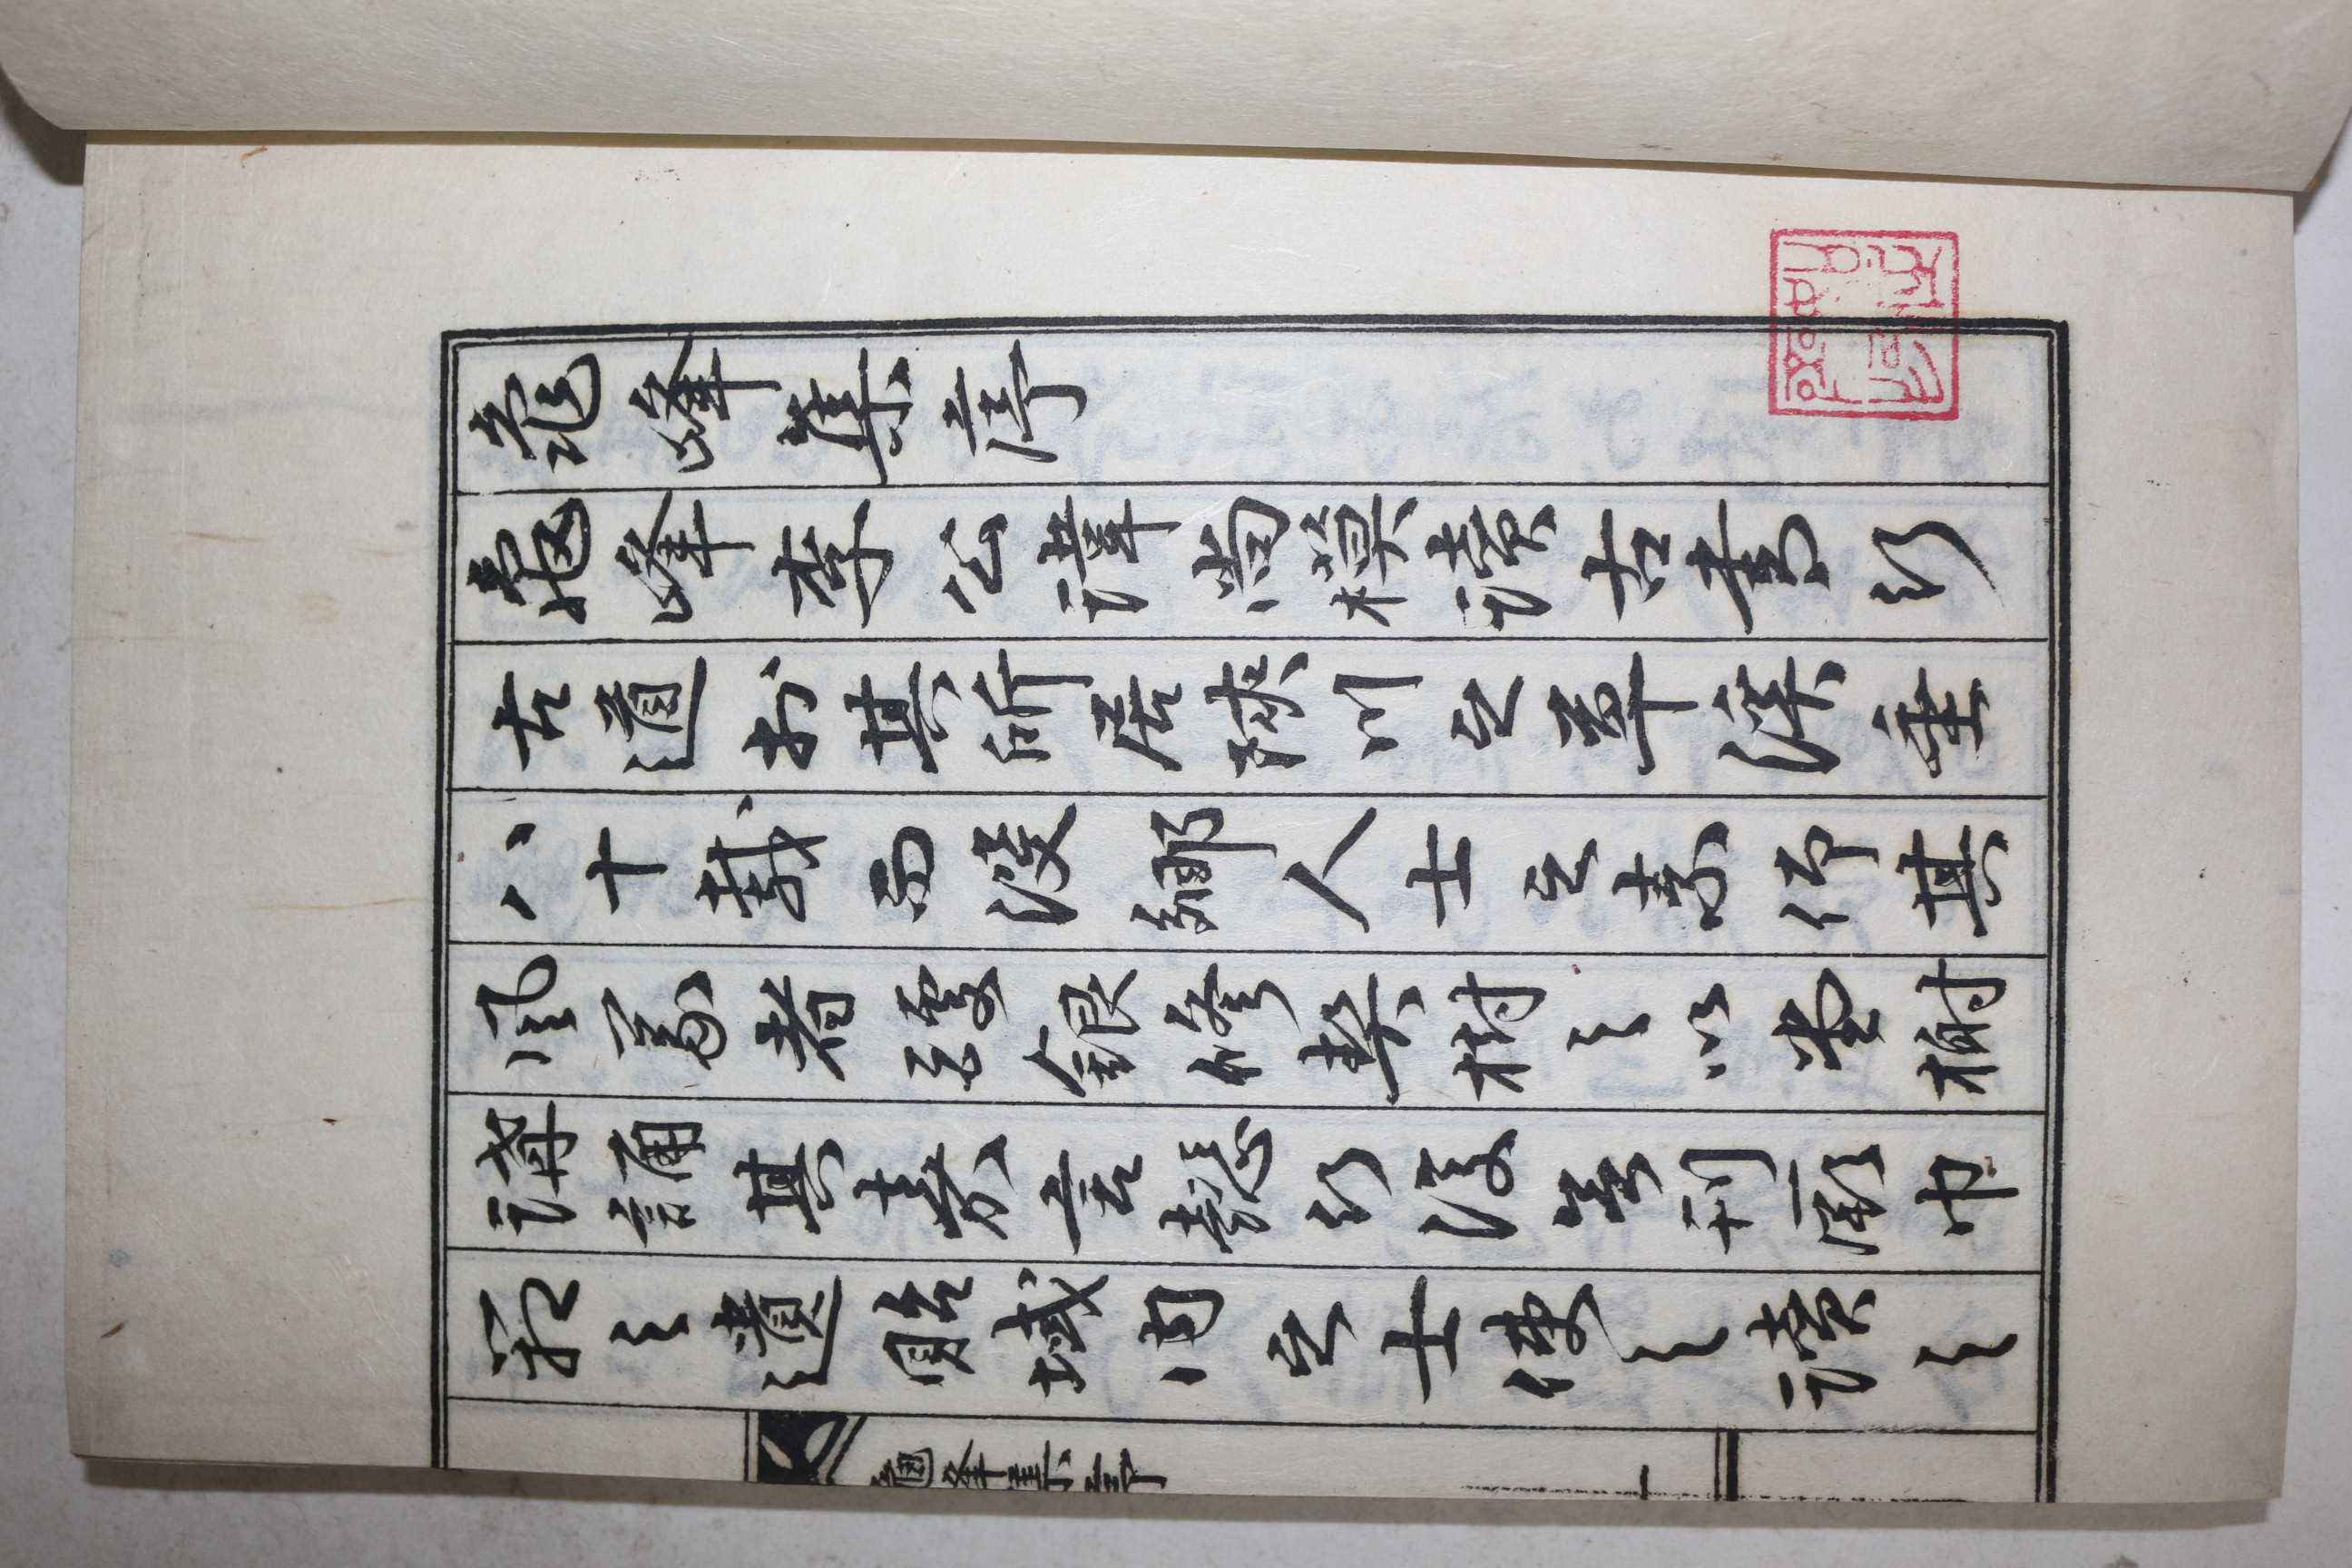 龜峰集序
龜峰李公諱尚模讀古書行
古道於其所居陜川之草溪垂
八十載而沒鄉人士之素仰其
風義者醵銀修契樹之以堂榭
講誦其嘉言懿行後無刊厥巾
箱之遺貽域內之士使之讀之
龜峰集序
一